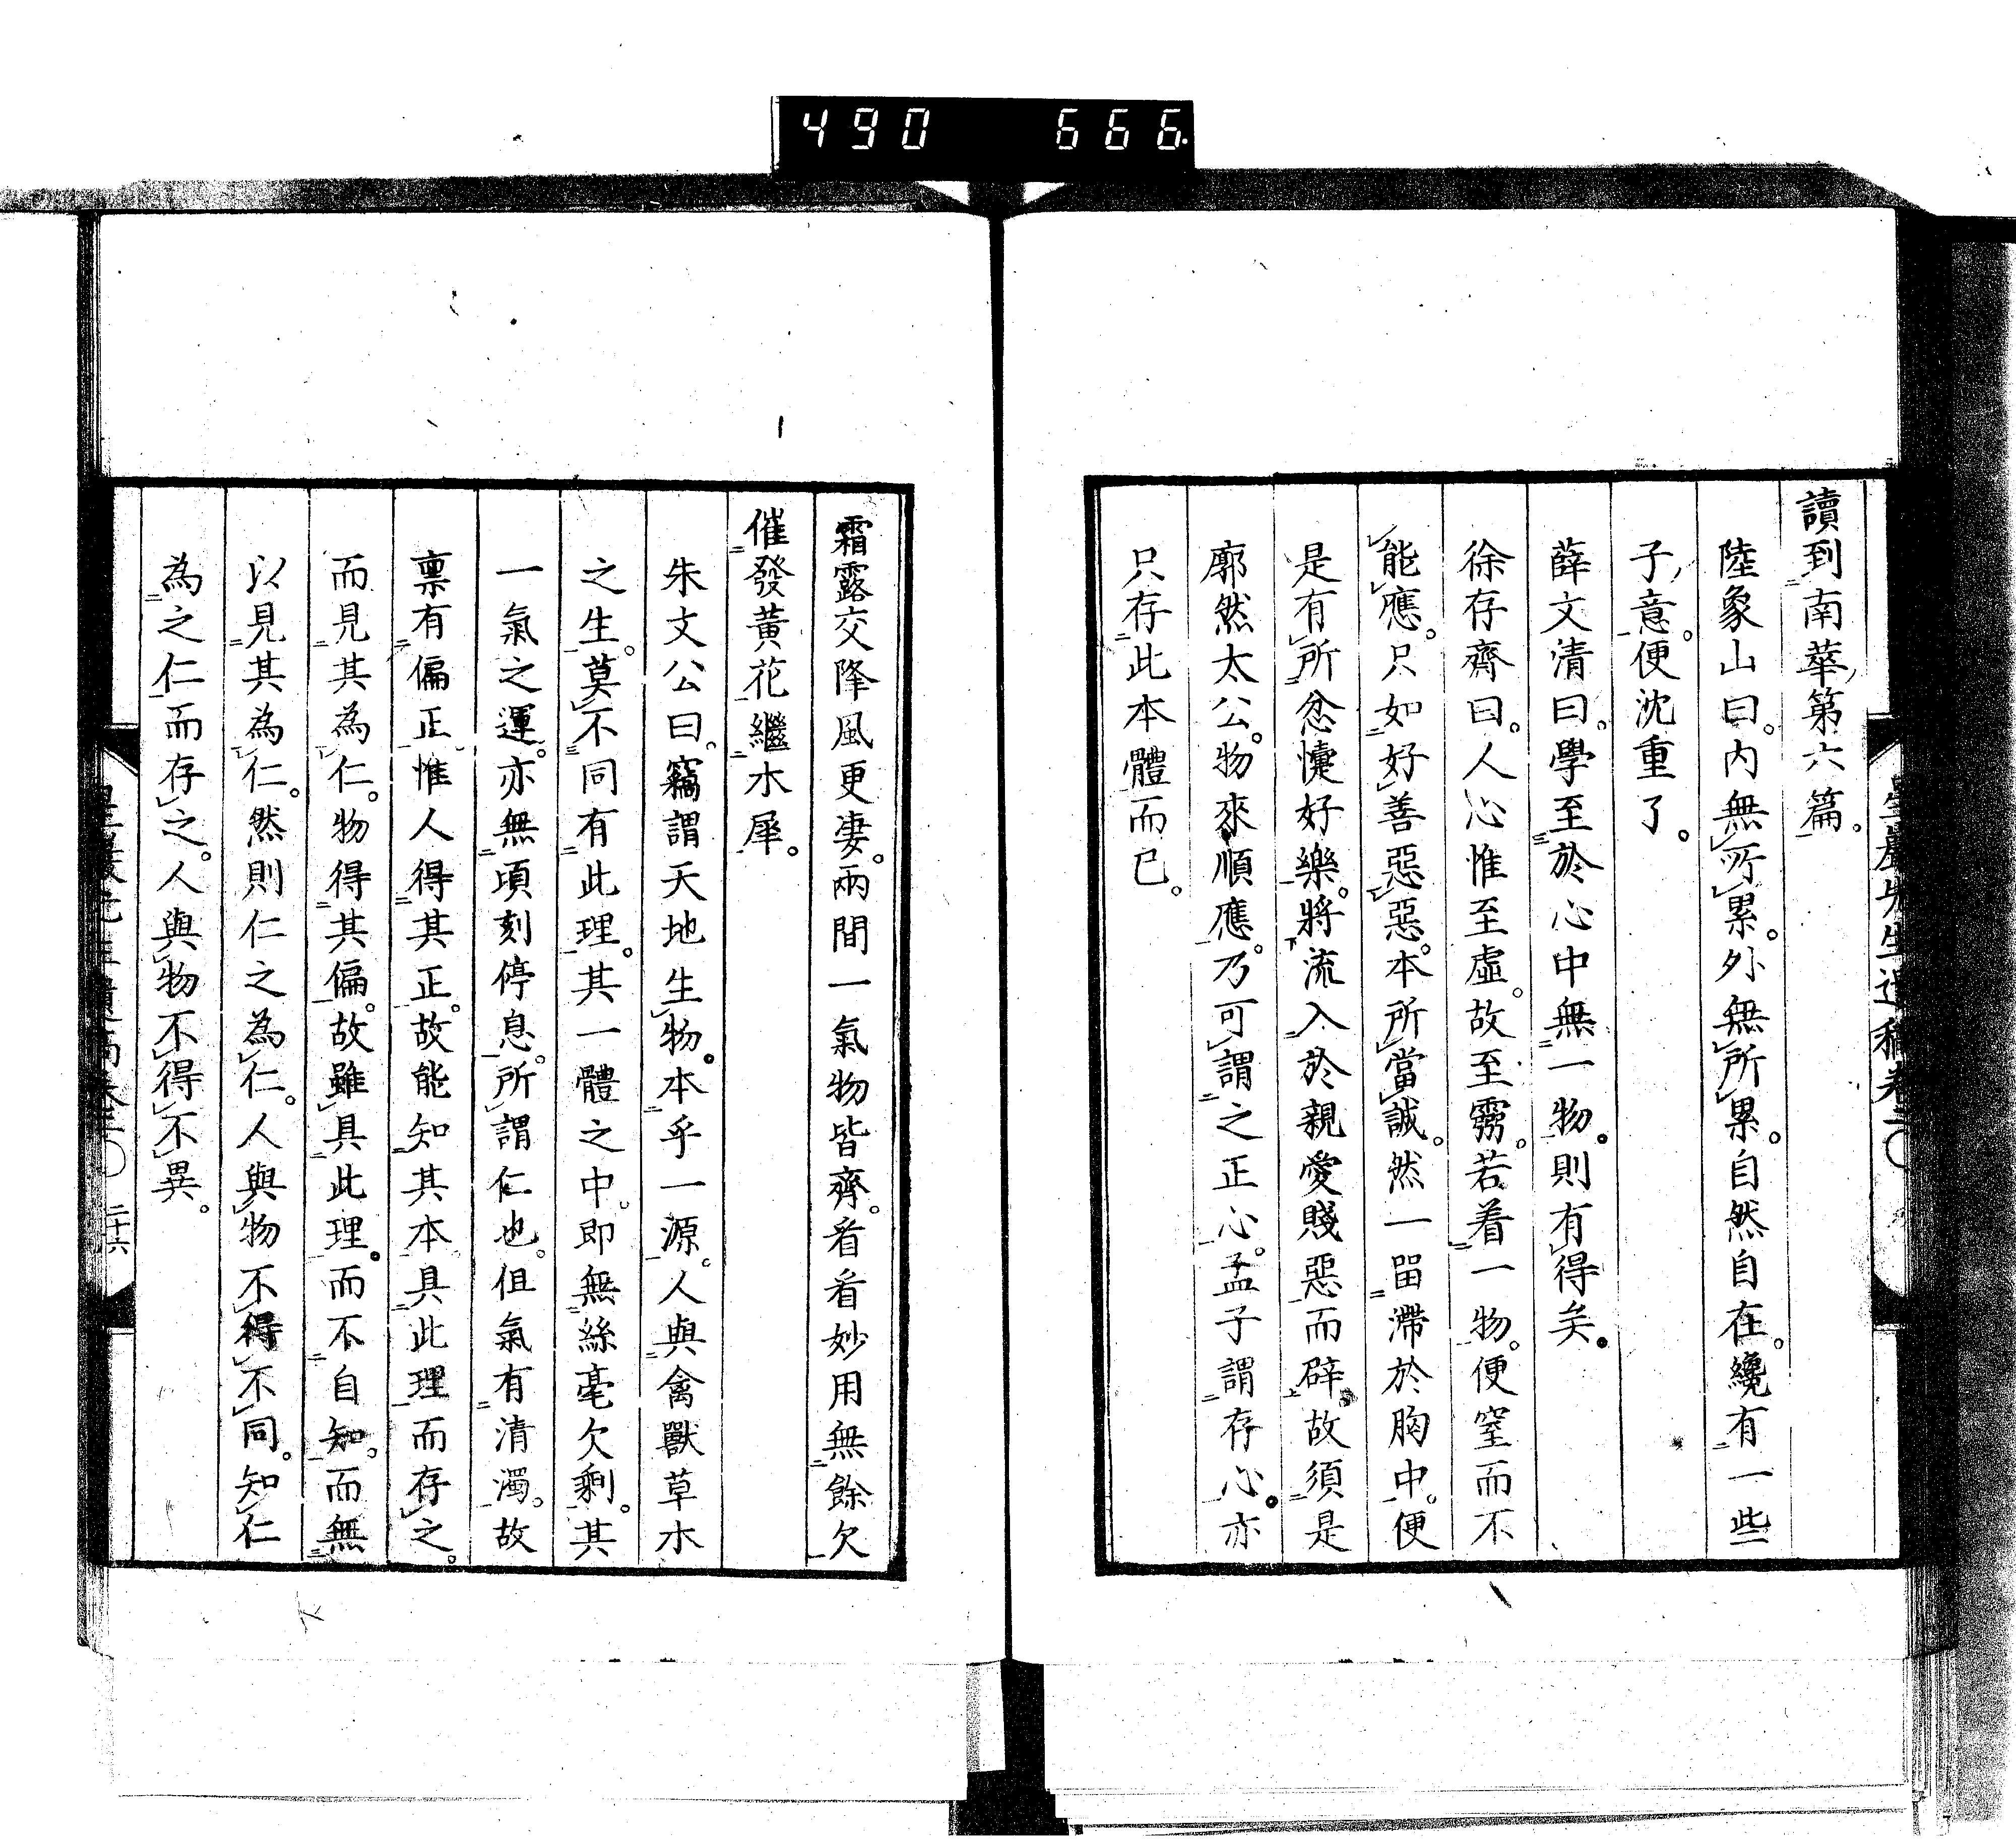 490 666
讀到南華第六篇。
陸象山曰。内無所累。外無所累。自然自在。纔有一些
子意。便沈重了。
薛文清曰。學至於心中無一物。則有得矣。
徐存齊曰。人心惟至虛。故至靈。若着一物。便窒而不
能應。只如好善惡惡。本所當誠。然一留滯於胸中。便
是有所忿懥好樂。將流入於親愛賤惡而辟。故須是
廓然太公。物來順應。乃可謂之正心。孟子謂存心。亦
只存此本體而已。
霜露交降風更凄。兩間一氣物皆齊。看看妙用無餘欠
催發黃花繼木犀。
朱文公曰。竊謂天地生物。本乎一源。人與禽獸草木
之生。莫不同有此理。其一體之中。即無絲毫欠剩。其
一氣之運。亦無頃刻停息。所謂仁也。但氣有清濁。故
禀有偏正。惟人得其正。故能知其本具此理而存之。
而見其為仁。物得其偏。故雖具此理。而不自知。而無
以見其為仁。然則仁之為仁。人與物不得不同。知仁
為之仁而存之。人與物不得不異。
二十六